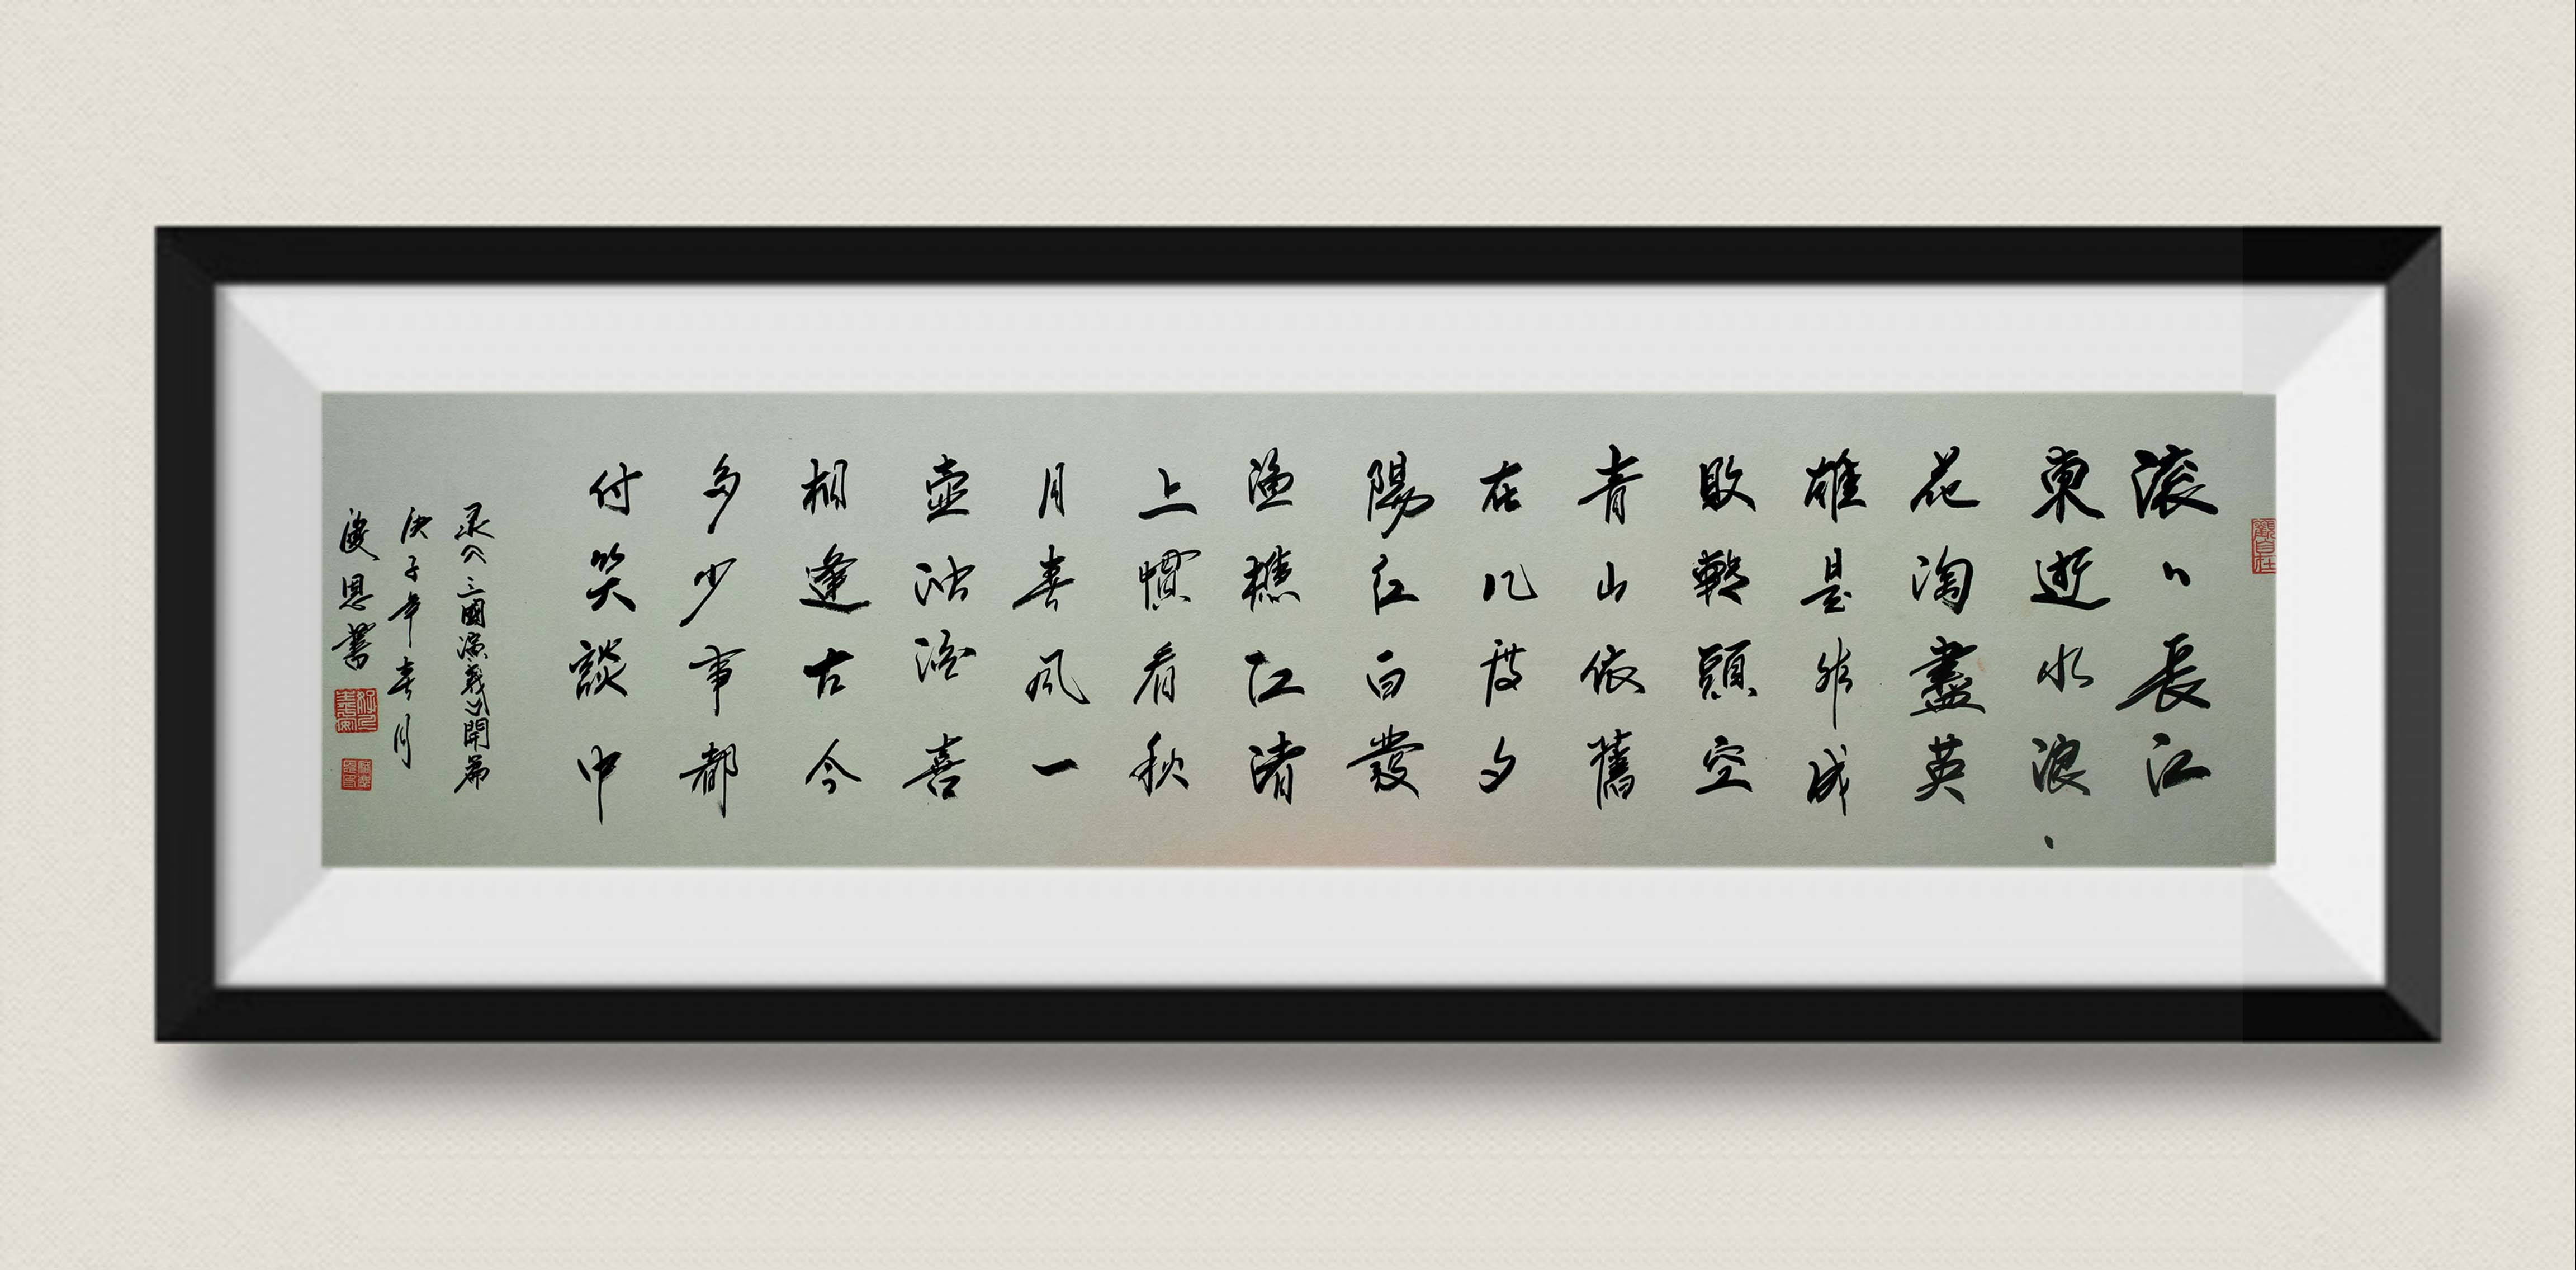 觀自在
滚〻長江
東逝水浪、
花淘盡英
雄是非成
敗轉頭空
青山依舊
在几度夕
陽红白發
漁樵江渚
上慣看秋
月春风一
壺浊酒喜
相逢古今
多少事都
付笑談中
录《三國演義》開篇
庚子年春月
恩書